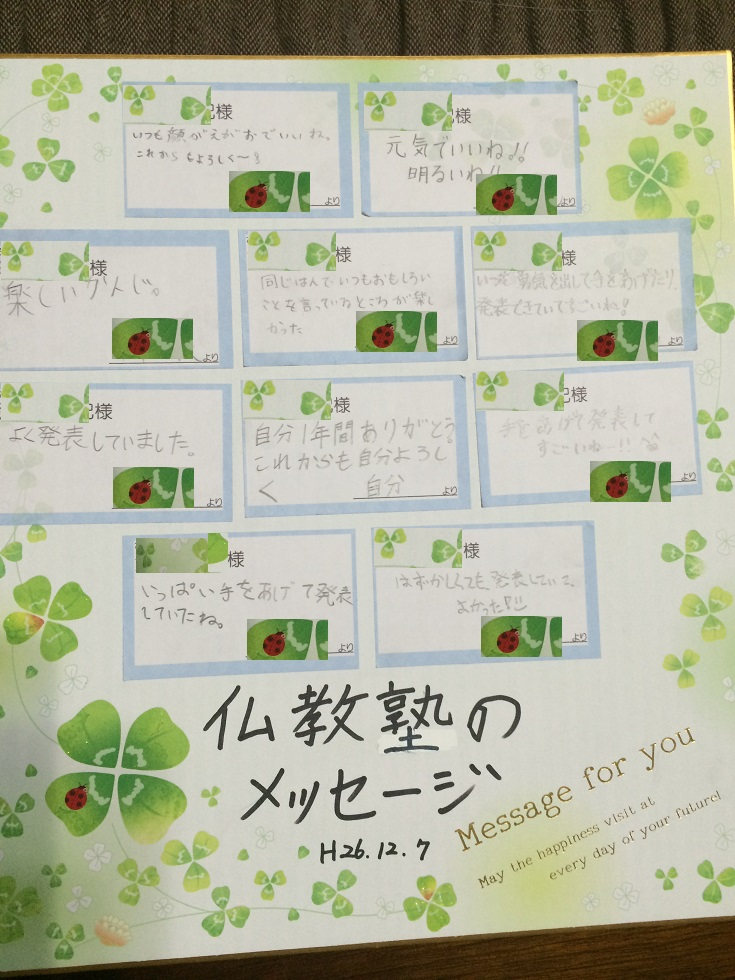 様
いつも顔がえがおでいいね。
これからもよろしく〜!
より
様
元気でいいね!!
明るいね!!
より
様
楽しいかんじ。
より
様
同じはんで、いつもおもしろい
ことを言っているところが楽し
かった
より
様
いつも勇気を出して手をあげたり、
発表できていてすごいね!
より
様
よく発表していました。
より
様
自分1年間ありがとう。
これからも自分よろし
く
自分
より
様
手をあげて発表して
すごいねー!!
より
様
いっぱい手をあげて発表
していたね。
より
様
はずかしくても、発表していて、
よかった!!
より
仏教塾の
メッセージ
H26.12.7
Message for you
May the happiness visit at
every day of your future!